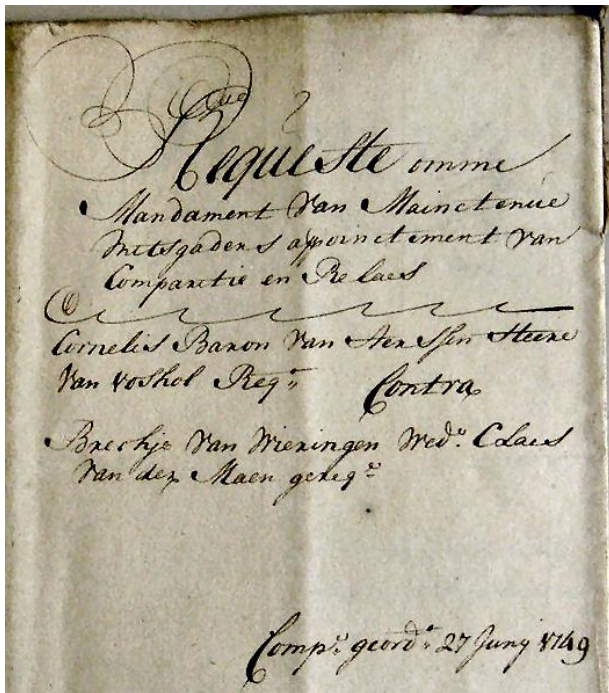 Requeste omme
Mandament van Mainctenue
mitsgaders appoinctement van
Comparitie en Relaes
Cornelis Baron van Aerssen Heere
van voshol Reqt
Contra
Brechje van Wieringen Wede. Claes
van der Maen gereqde
Compe: georde. 27 Juny 1749